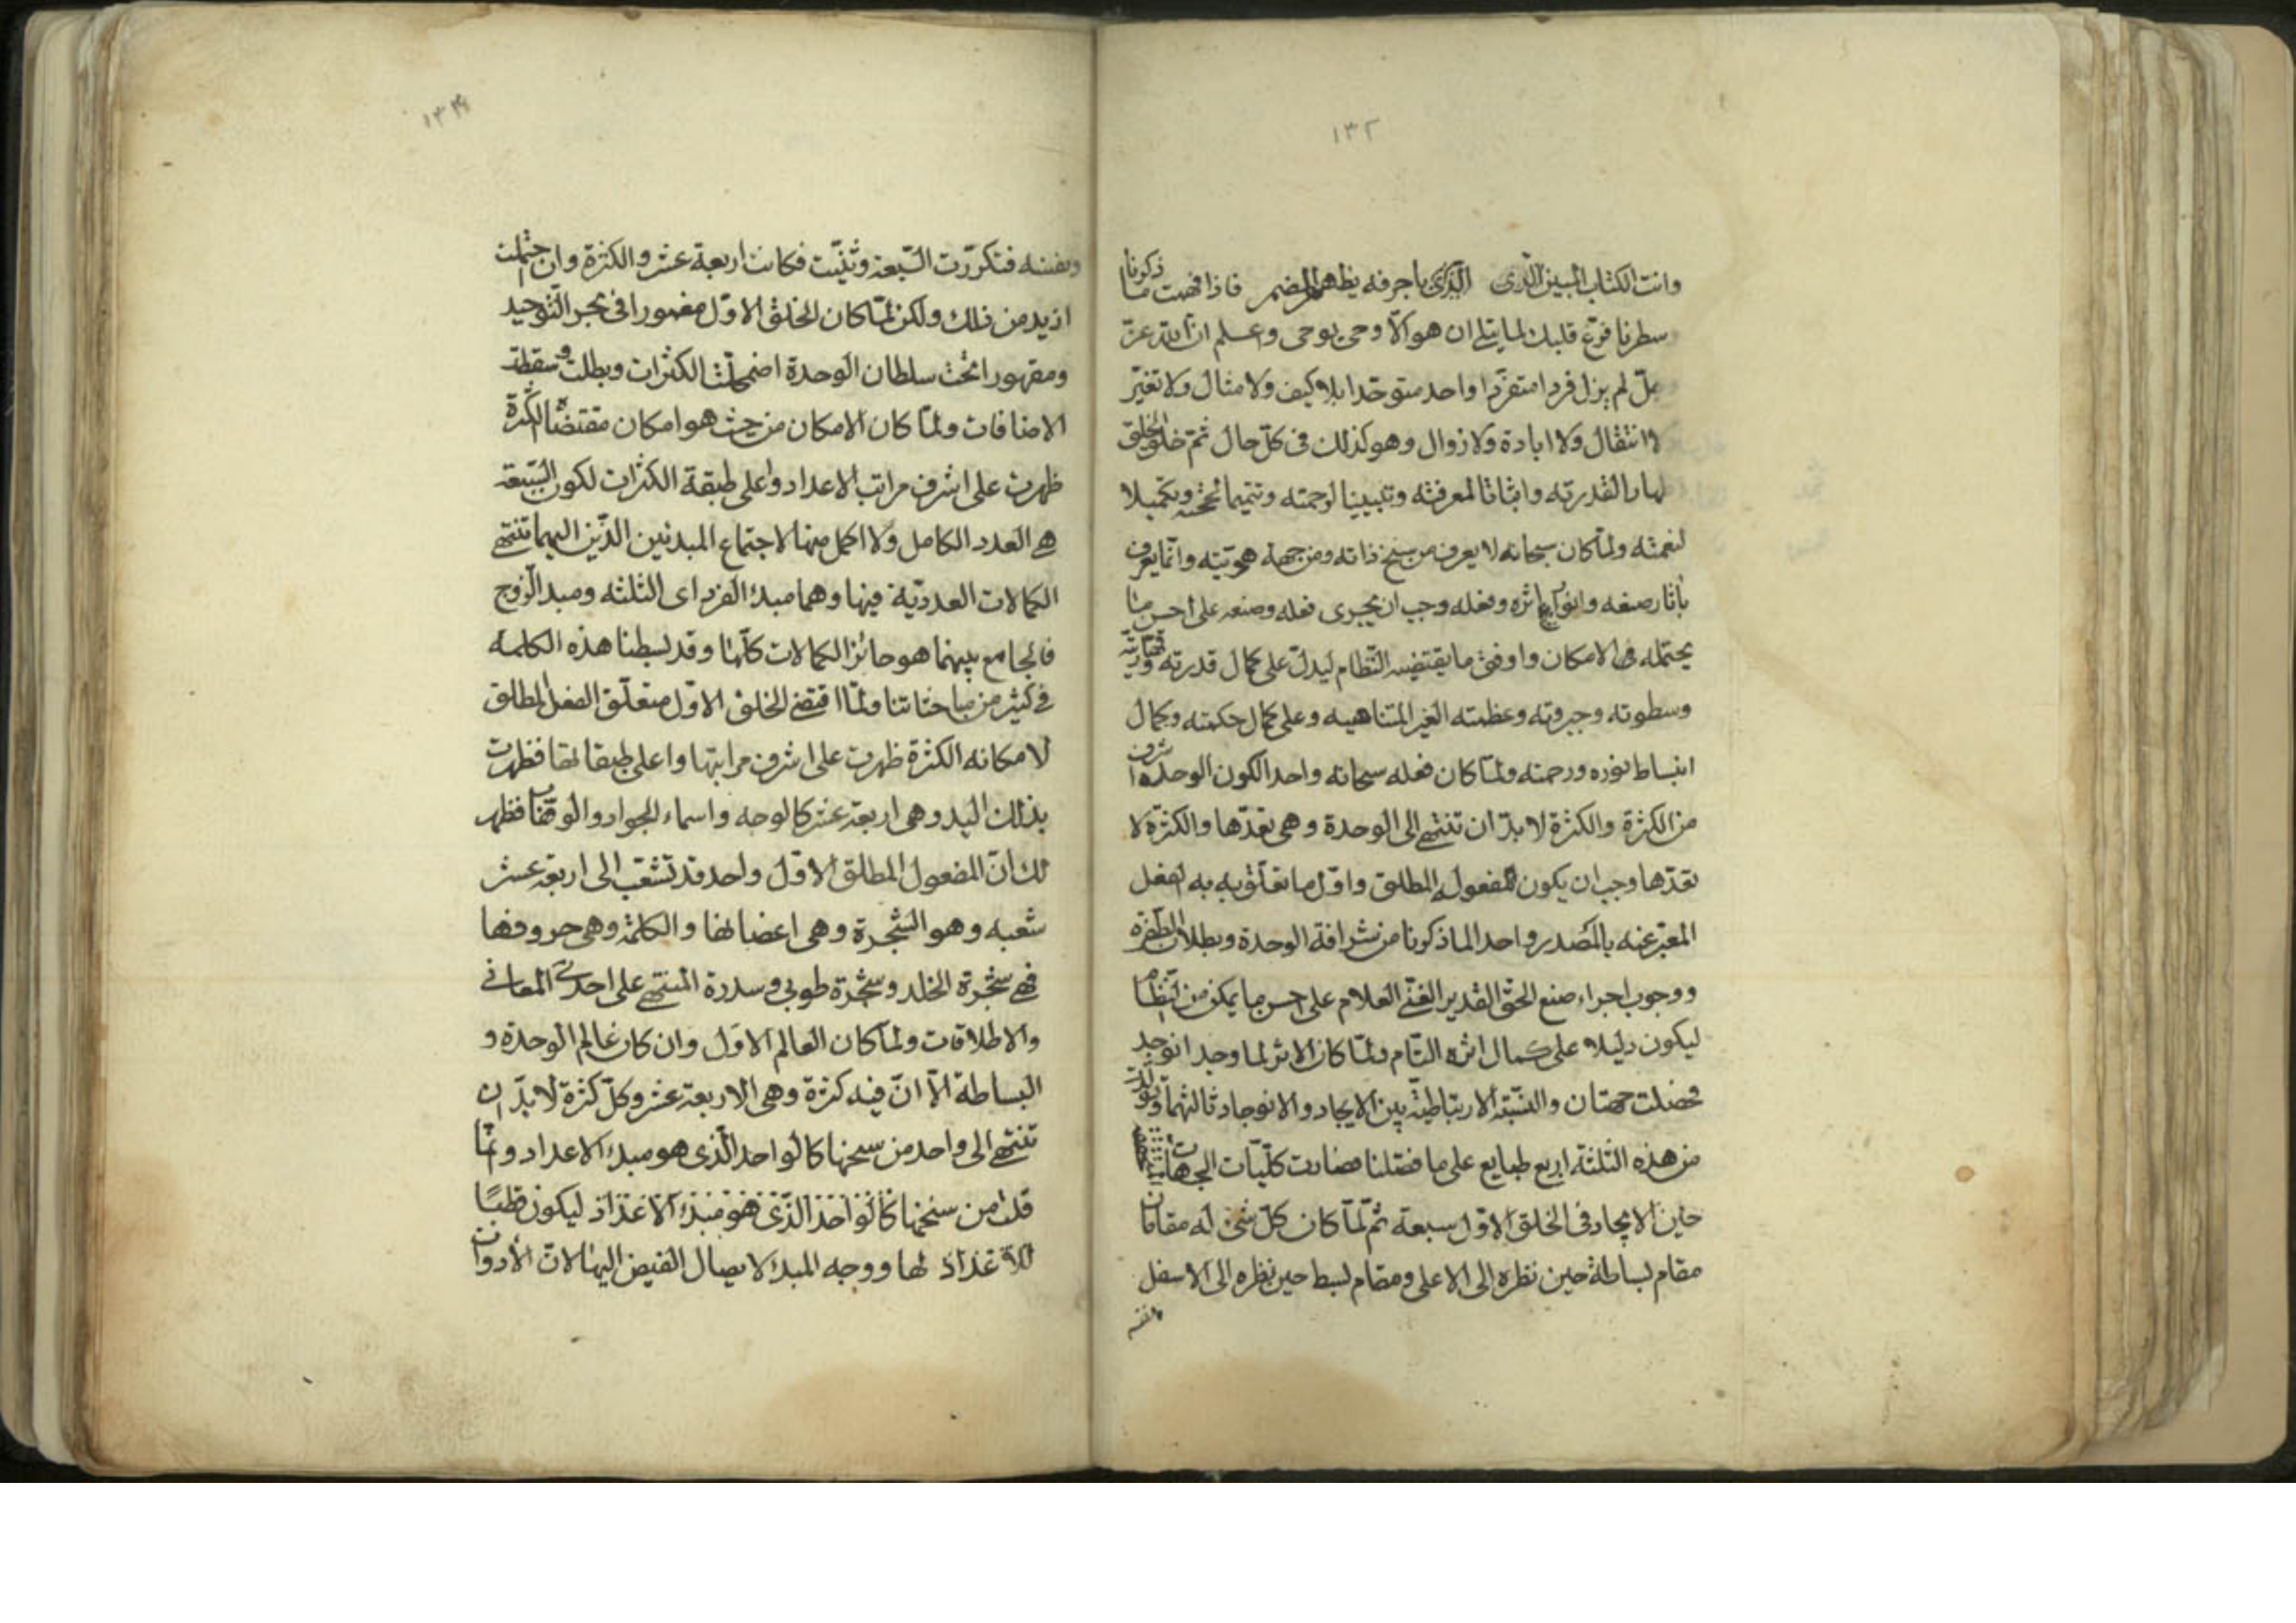 ١٣٢
وانت الكتاب المبين الذى الذى باحرفه يظهر المضمر فاذا فهمت ما ذكرنا
سطرنا فرّغ قلبك لما يتلى ان هو الا وحى يوحى وعلم انّ الله عزّ
وجلّ لم يزل فردا متفرّدا واحد متوحّدا بلا كيف ولا مثال ولا تغيّر
لا انتقال ولا ابادة ولا زوال وهو كذلك فى كلّ حال ثمّ خلق الخلق
لقدرته واثباتا لمعرفته وتبيينا لرحمته وتتميما لحجته وتكميلا
لنعمته ولمّا كان سبحانه لا يعرف من سنخ ذاته ومن جهة هويّته وانّما يعرف
بأثار صنعه وانوار اثره وفعله وجب ان يجرى فعله وصنعه على احسن ما
يحتمله فى الامكان واوفق ما يقتضيه النّظام ليدلّ على كمال قدرته وقهّاريّته
وسطوته وجبروته وعظمته الغير المتناهيه وعلى كمال حكمته وكمال
انبساط نوره ورحمته ولمّا كان فعله سبحانه واحدا لكون الوحدة اشرف
من الكثرة والكثرة لا بدّ ان تنتهى الى الوحدة وهى تعدّها والكثرة لا
تعدّها وجب ان يكون المفعول المطلق واوّل ما تعلّق به الفعل
المعبّر عنه بالمصدر واحد الماذكرنا من شرافة الوحدة وبطلان الطّفرة
ووجوب اجراء صنع الحقّ القدير الغنّى العلام على احسن ما يمكن من النّظام
ليكون دليلا على كمال اثره التّام ولمّا كان الاثر لما وجد انوجد
فحصلت جهتان والنّسبة الارتباطيّة بين الايجاد والانوجاد ثالثهما وتولّدت
من هذه الثّلثة اربع طبايع على ما فصّلنا فصارت كلّيّات الجهات
حين الايجاد فى الخلق الاوّل سبعة ثمّ لمّا كان كلّ شئ له مقامان
مقام بساطة حين نظره الى الاعلى ومقام بسط حين نظره الى الاسفل
ونفسه
١٣٣
ونفسه فتكرّرت السّبعة وثنيّت فكانت اربعة عشر والكثرة وان احتملت
ازيد من ذلك ولكن لمّا كان الخلق الاوّل مغمورا فى بحر التّوحيد
ومقهورا تحت سلطان الوحدة اضمحلّت الكثرات وبطلت وسقطت
الاضافات ولمّا كان الامكان من حيث هو امكان مقتضيا الكثرة
ظهرت على اشرف مراتب الاعداد واعلى طبقة الكثرات لكون السّبعة
هى العدد الكامل ولا اكمل منها لاجتماع المبدئين الذّين اليهما تنتهى
الكمالات العدديّة فيها وهما مبدء الفرد اى الثلثه ومبدء الزّوج
فالجامع بينهما هو حائز الكمالات كلّها وقد بسطنا هذه الكلمة
فى كثير من مباحثاتنا ولمّا اقتضى الخلق الاوّل متعلّق الفعل المطلق
لامكانه الكثرة ظهرت على اشرف مراتبها واعلى طبقاتها فظهرت
بذلك اليد وهى اربعة عشر كالوجه واسماء الجواد والوهّاب فظهر
لك انّ المفعول المطلق الاوّل واحد قد تشعّب الى اربعة عشر
شعبه وهو الشّجرة وهى اغصانها والكلمة وهى حروفها
فهى شجرة الخلد وشجرة طوبى وسدرة المنتهى على احدى المعانى
والاطلاقات ولمّا كان العالم الاوّل وان كان عالم الوحدة و
البساطة الاّ انّ فيه كثرة وهى الاربعة عشر وكلّ كثرة لا بدّ ان
تنتهى الى واحد من سنخها كالواحد الّذى هو مبدء الاعداد وانّما
قلت من سنخها كالواحد الّذى هو مبدء الاعداد ليكون قطبًا
للاعداد لها ووجه المبدء لايصال الفيض اليها لانّ الادوات